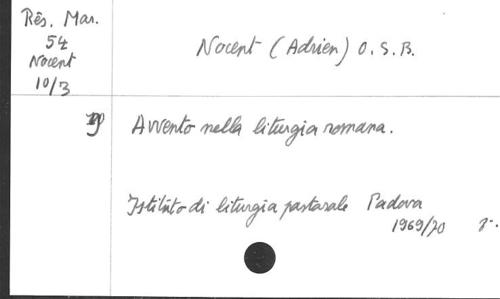 Rês. Mar.
54
Nocent
10/3
Nocent (Adrien) O.S.B.
Avvento nella liturgia romana.
Istituto di liturgia pastorale Padova
1969/70